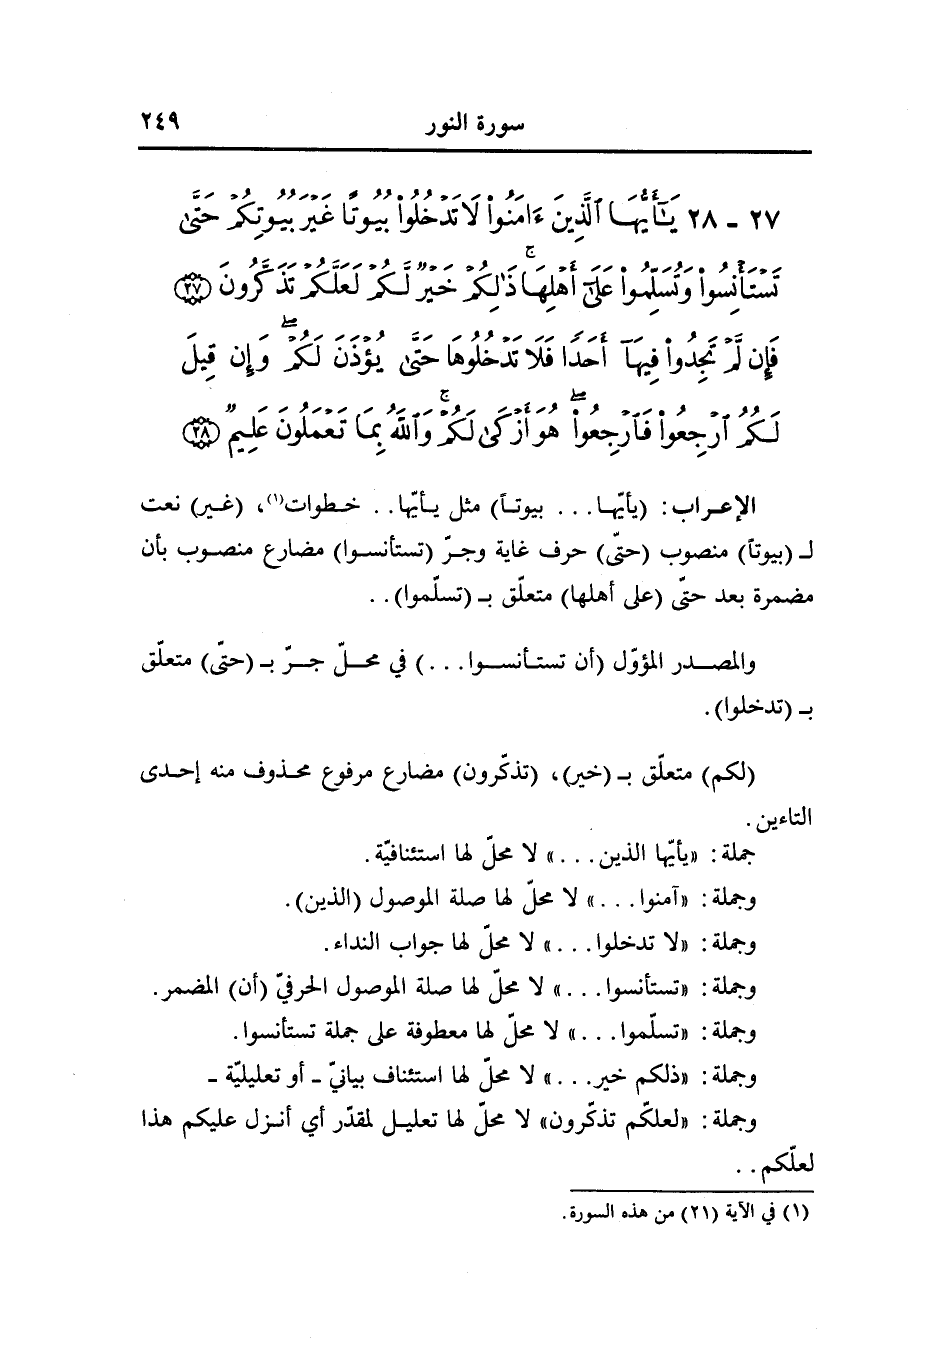 سورة النور ٢٤٩
٢٧ - ٢٨ يَـٰٓأَيُّهَا ٱلَّذِينَ ءَامَنُوا۟ لَا تَدْخُلُوا۟ بُيُوتًا غَيْرَ بُيُوتِكُمْ حَتَّىٰ
تَسْتَأْنِسُوا۟ وَتُسَلِّمُوا۟ عَلَىٰٓ أَهْلِهَا ۚ ذَٰلِكُمْ خَيْرٌ لَّكُمْ لَعَلَّكُمْ تَذَكَّرُونَ ﴿٢٧﴾
فَإِن لَّمْ تَجِدُوا۟ فِيهَآ أَحَدًا فَلَا تَدْخُلُوهَا حَتَّىٰ يُؤْذَنَ لَكُمْ ۖ وَإِن قِيلَ
لَكُمُ ٱرْجِعُوا۟ فَٱرْجِعُوا۟ ۖ هُوَ أَزْكَىٰ لَكُمْ ۚ وَٱللَّهُ بِمَا تَعْمَلُونَ عَلِيمٌ ﴿٢٨﴾
الإعراب: (يأيّها... بيوتاً) مثل يأيّها.. خطوات(١)، (غير) نعت
لـ (بيوتاً) منصوب (حتّى) حرف غاية وجرّ (تستأنسوا) مضارع منصوب بأن
مضمرة بعد حتّى (على أهلها) متعلّق بـ (تسلّموا)..
والمصدر المؤوّل (أن تستأنسوا...) في محلّ جرّ بـ (حتّى) متعلّق
بـ (تدخلوا).
(لكم) متعلّق بـ (خير)، (تذكّرون) مضارع مرفوع محذوف منه إحدى
التاءين.
جملة: «يأيّها الذين...» لا محلّ لها استئنافيّة.
وجملة: «آمنوا...» لا محلّ لها صلة الموصول (الذين).
وجملة: «لا تدخلوا...» لا محلّ لها جواب النداء.
وجملة: «تستأنسوا...» لا محلّ لها صلة الموصول الحرفيّ (أن) المضمر.
وجملة: «تسلّموا...» لا محلّ لها معطوفة على جملة تستأنسوا.
وجملة: «ذلكم خير...» لا محلّ لها استئناف بيانيّ - أو تعليليّة -
وجملة: «لعلكّم تذكّرون» لا محلّ لها تعليل لمقدّر أي أنزل عليكم هذا
لعلّكم..
(١) في الآية (٢١) من هذه السورة.